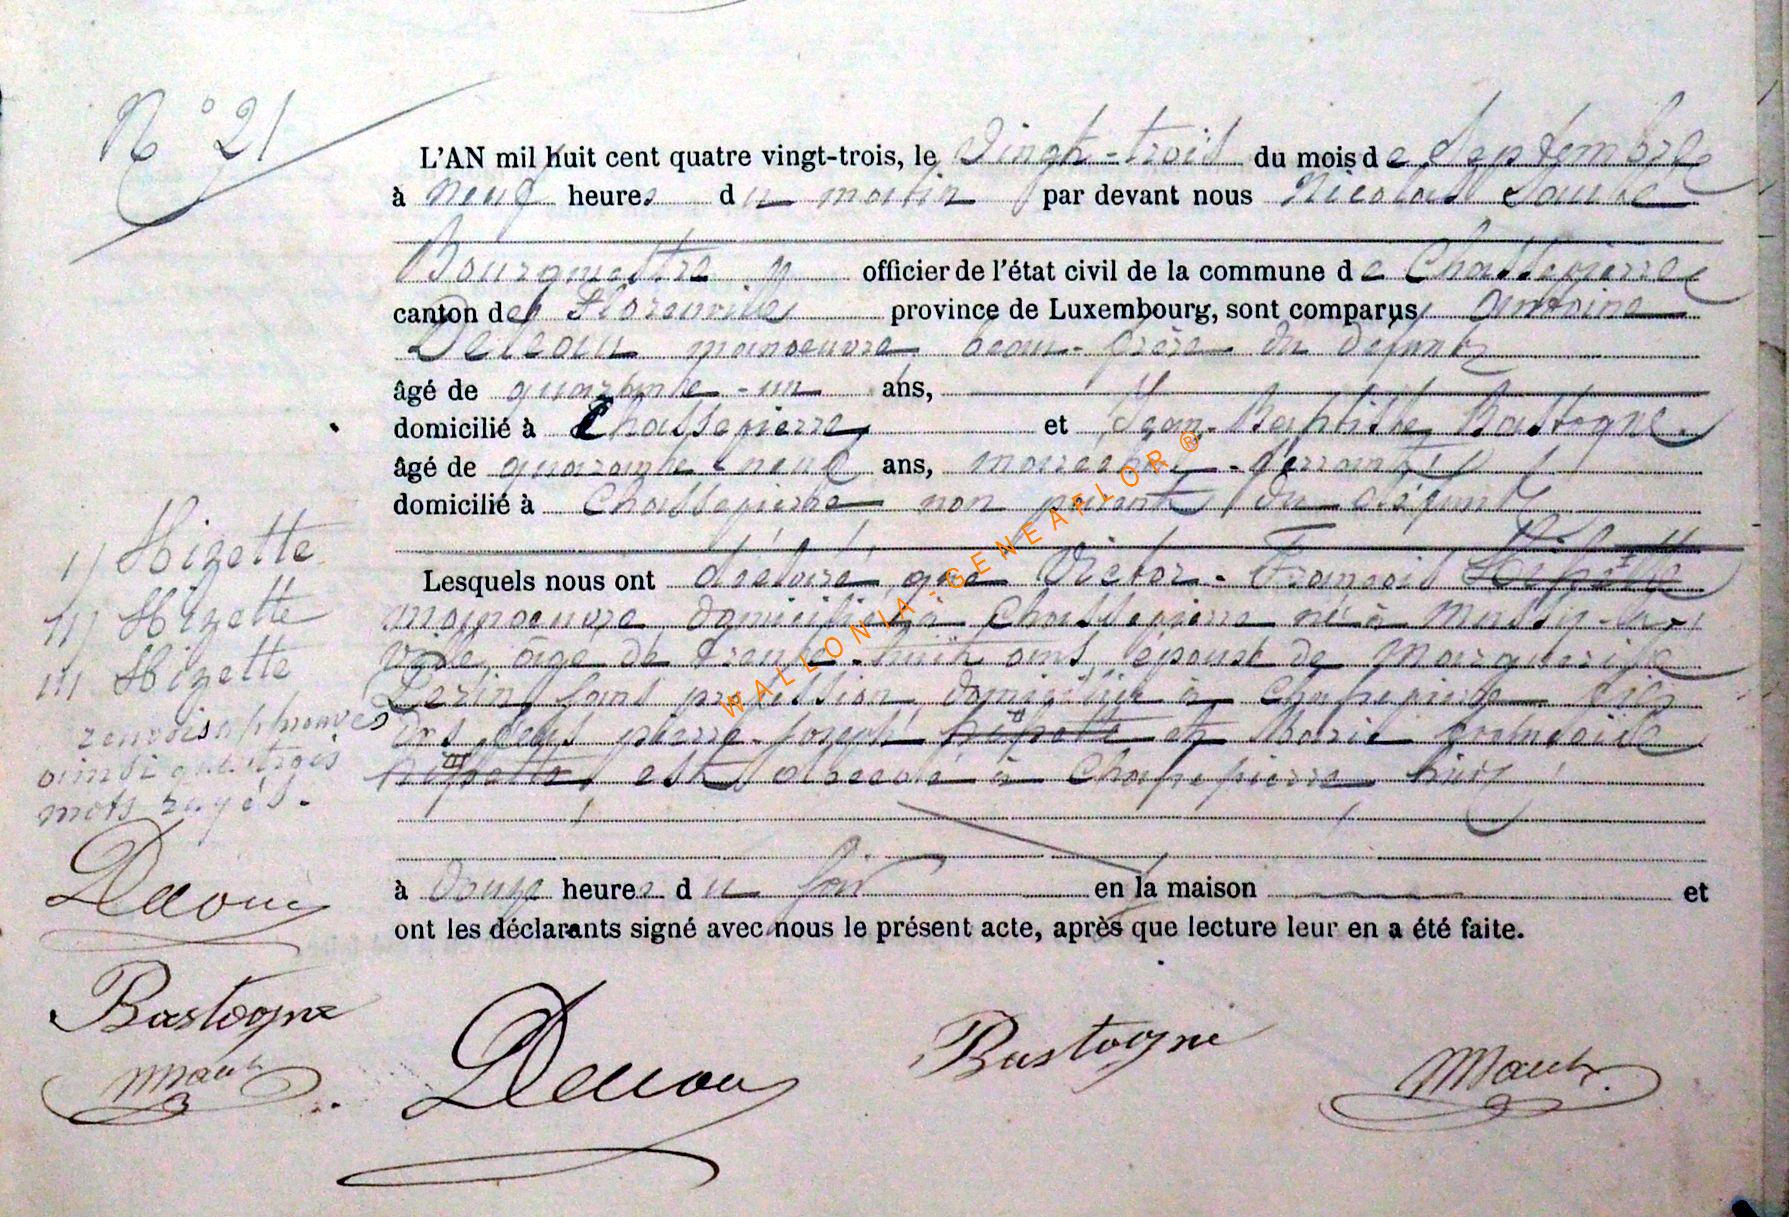 N° 21
L'AN mil huit cent quatre vingt-trois, le vingt-trois du mois de Septembre
à neuf heures du matin par devant nous Nicolas
Bourgmestre officier de l'état civil de la commune de Chassepierre
canton de Florenville province de Luxembourg, sont comparus Antoine
manoeuvre beau-frère du défunt
âgé de quarante-un ans,
domicilié à Chassepierre et Jean-Baptiste Bastogne
âgé de quarante-neuf ans, marechal-ferrant
domicilié à Chassepierre non parent du défunt
Lesquels nous ont déclaré que Victor-François
manoeuvre domicilié à Chassepierre né à Mussy-la-
ville âgé de trente-huit ans, époux de Marguerite
sans profession domiciliée à Chassepierre fils
des pierre-joseph hizette et Marie
hizette est décédé à Chassepierre hier
à douze heures du soir en la maison et
ont les déclarants signé avec nous le présent acte, après que lecture leur en a été faite.
I/ Hizette
II/ Hizette
III/ Hizette
renvois approuvés
ainsi que trois
mots rayés.
Bastogne
Bastogne
WALLONIA-GENEAFLOR®